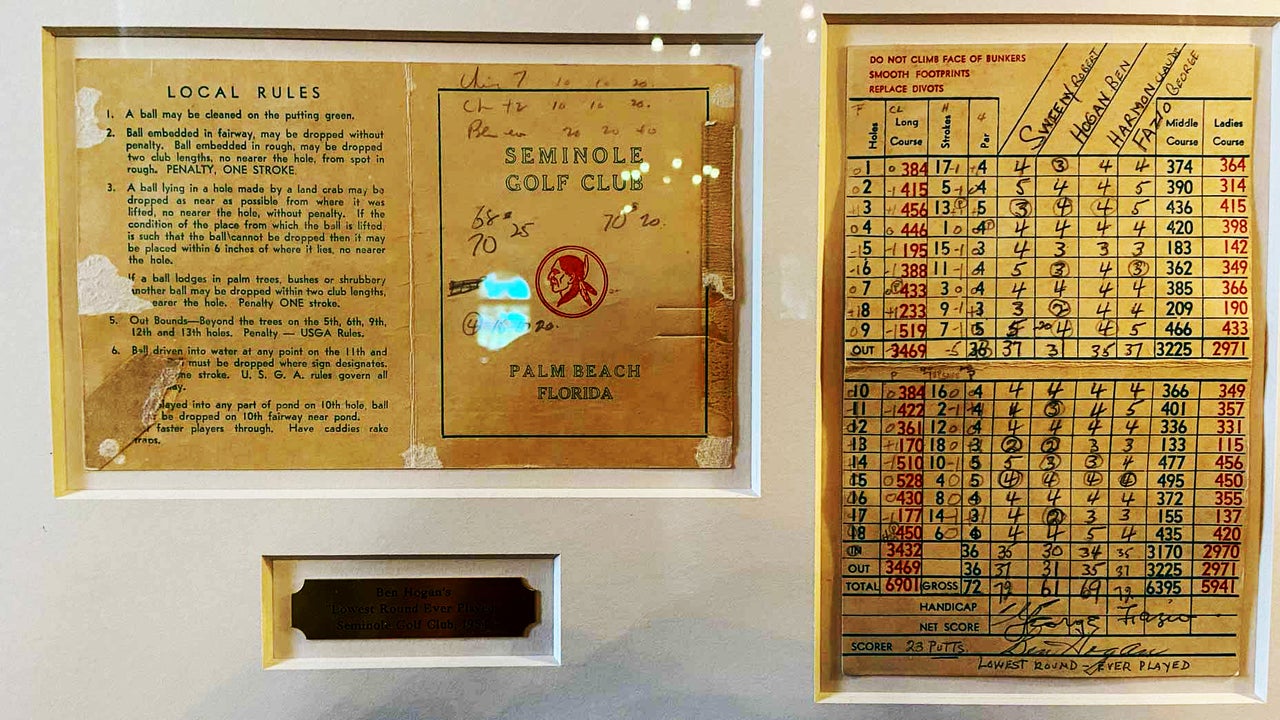 LOCAL RULES
1. A ball may be cleaned on the putting green.
2. Ball embedded in fairway, may be dropped without
penalty. Ball embedded in rough, may be dropped
two club lengths, no nearer the hole, from spot in
rough. PENALTY, ONE STROKE.
3. A ball lying in a hole made by a land crab may be
dropped as near as possible from where it was
lifted, no nearer the hole, without penalty. If the
condition of the place from which the ball is lifted
is such that the ball cannot be dropped then it may
be placed within 6 inches of where it lies, no nearer
the hole.
If a ball lodges in palm trees, bushes or shrubbery
another ball may be dropped within two club lengths,
nearer the hole. Penalty ONE stroke.
5. Out Bounds—Beyond the trees on the 5th, 6th, 9th,
12th and 13th holes. Penalty — USGA Rules.
6. Ball driven into water at any point on the 11th and
must be dropped where sign designates.
stroke. U. S. G. A. rules govern all
played into any part of pond on 10th hole, ball
be dropped on 10th fairway near pond.
faster players through. Have caddies rake
traps.
7 10 10 20.
10 10 20.
Ben 20 20 40
SEMINOLE
GOLF CLUB
68 25 70 20.
70
20.
PALM BEACH
FLORIDA
Ben Hogan's
"Lowest Round Ever Played"
Seminole Golf Club,
DO NOT CLIMB FACE OF BUNKERS
SMOOTH FOOTPRINTS
REPLACE DIVOTS
Holes Long Course Strokes Par SWEENY ROBERT HOGAN BEN HARMON CLAUDE FAZIO GEORGE Middle Course Ladies Course
1 384 17 4 4 3 4 4 374 364
2 415 5 4 5 4 4 5 390 314
3 456 13 5 3 4 4 5 436 415
4 446 1 4 4 4 4 4 420 398
5 195 15 3 4 3 3 3 183 142
6 388 11 4 5 3 4 3 362 349
7 433 3 4 4 4 4 4 385 366
8 233 9 3 3 2 4 4 209 190
9 519 7 5 5 4 4 5 466 433
OUT 3469 36 37 31 35 37 3225 2971
10 384 16 4 4 4 4 4 366 349
11 422 2 4 4 3 4 5 401 357
12 361 12 4 4 4 4 4 336 331
13 170 18 3 2 2 3 3 133 115
14 510 10 5 5 3 3 4 477 456
15 528 4 5 4 4 4 4 495 450
16 430 8 4 4 4 4 4 372 355
17 177 14 3 4 2 3 3 155 137
18 450 6 4 4 4 5 4 435 420
IN 3432 36 35 30 34 35 3170 2970
OUT 3469 36 37 31 35 37 3225 2971
TOTAL 6901 GROSS 72 72 61 69 72 6395 5941
HANDICAP
NET SCORE George Fazio
SCORER 23 PUTTS Ben Hogan
LOWEST ROUND - EVER PLAYED